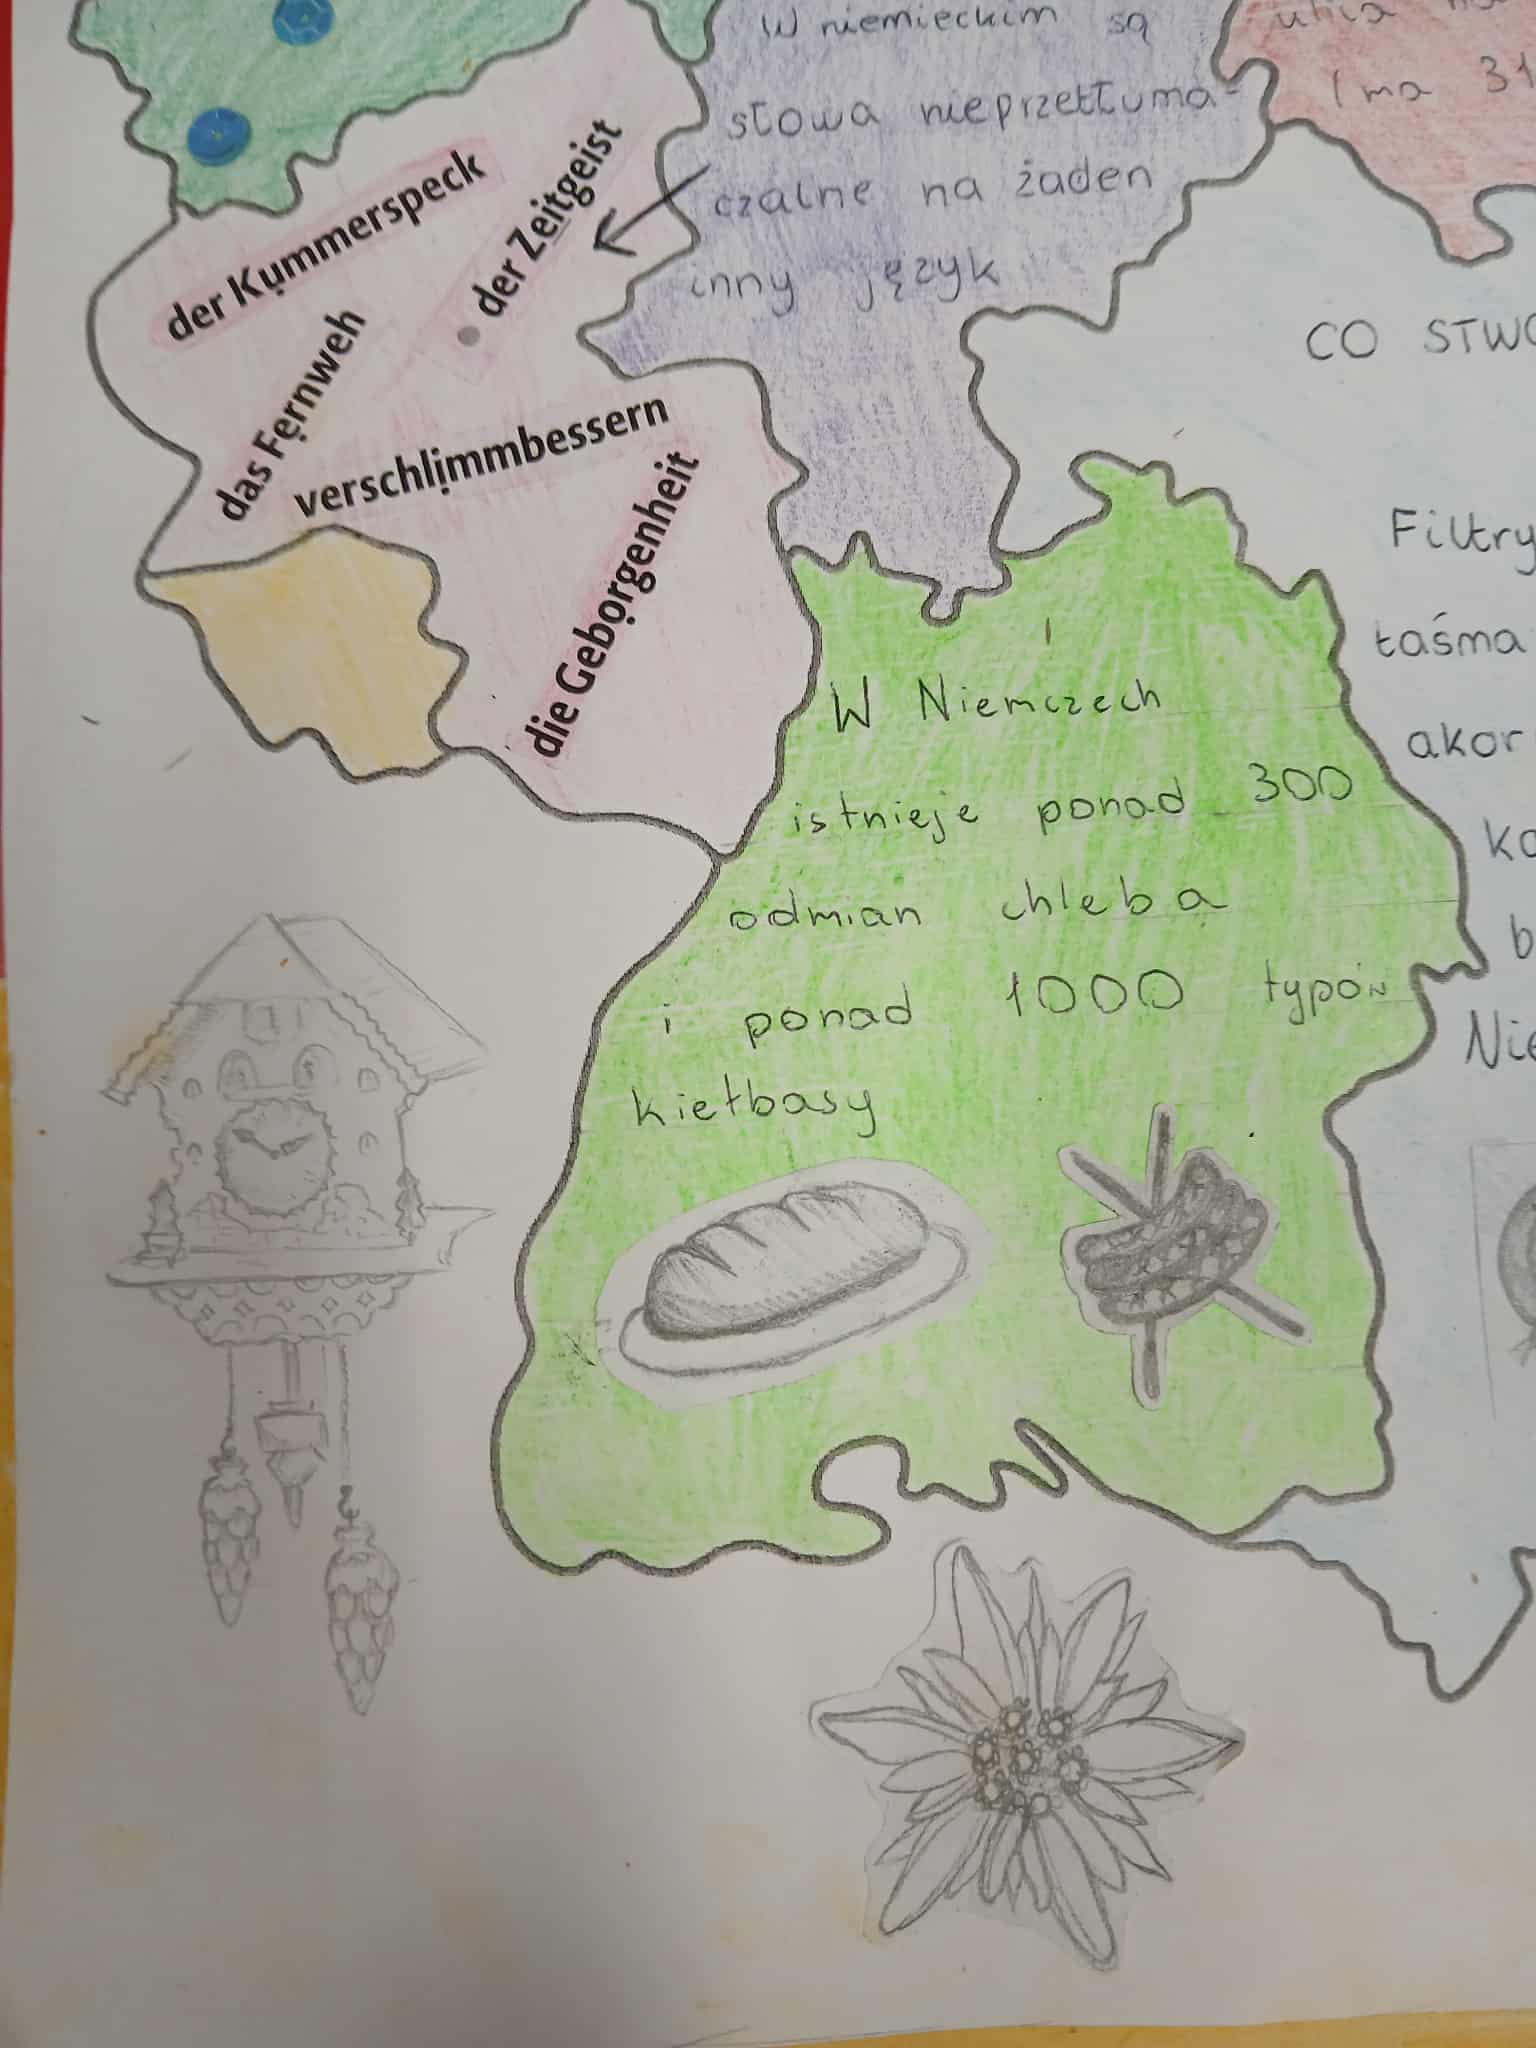 W niemieckim są
słowa nieprzetłuma-
czalne na żaden
inny język
ulica
I ma 31
der Kummerspeck
der Zeitgeist
das Fernweh
verschlimmbessern
die Geborgenheit
CO STWO
Filtry
taśma
akor
ko
b
Nie
W Niemczech
istnieje ponad 300
odmian chleba
i ponad 1000 typów
kiełbasy